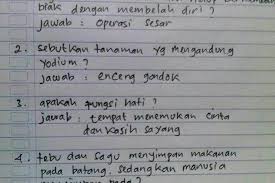 biak dengan membelah diri ?
jawab : operasi sesar
2. sebutkan tanaman yg mengandung
yodium ?
jawab : enceng gondok
3. apakah fungsi hati ?
jawab : tempat menemukan cinta
dan kasih sayang
4. tebu dan sagu menyimpan makanan
pada batang, sedangkan manusia
pada ?